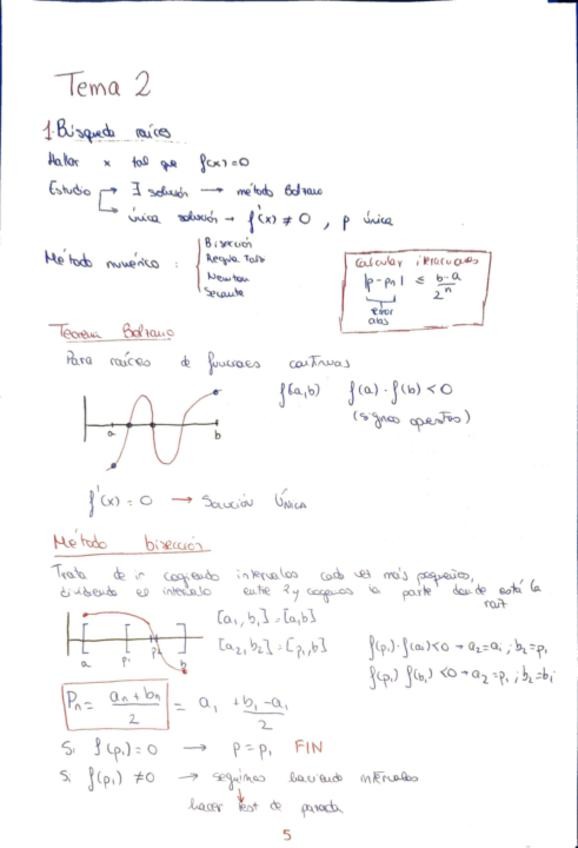 Tema 2
1. Búsqueda raíces
Hallar x tal que f(x)=0
Estudio → ∃ solución → método Bolzano
→ única solución → f'(x) ≠ 0 , p única
Método numérico :
Bisección
Regula Falsi
Newton
Secante
Calcular iteraciones
|p-pn| ≤ b-a / 2^n
error
abs
Teorema Bolzano
Para raíces de funciones continuas
f(a,b) f(a)·f(b)<0
(signos opuestos)
a b
f'(x) = 0 → Solución Única
Método bisección
Trata de ir cogiendo intervalos cada vez más pequeños,
dividiendo el intervalo entre 2 y cogemos la parte donde está la
raíz
[a1, b1] = [a,b]
[a2, b2] = [p1, b]
f(p1)·f(a1)<0 → a2=a1 ; b2=p1
f(p1) f(b1) <0 → a2=p1 ; b2=b1
a p1 p2 b
Pn = an + bn / 2 = a1 + b1-a1 / 2
Si f(p1)=0 → p=p1 FIN
Si f(p1) ≠0 → seguimos haciendo intervalos
hacer test de parada
5